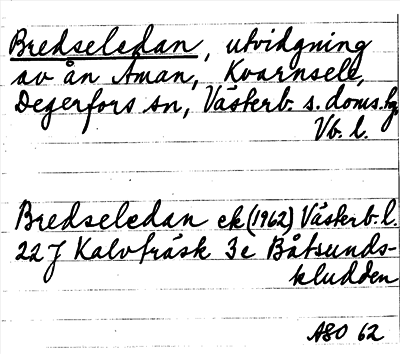 Bredseledan, utvidgning
av ån Åman, Kvarnsele,
Degerfors sn, Västerb. s. doms.hg
Vb. l.
Bredseledan ek (1962) Västerb. l.
22 J Kalvträsk 3c Båtsunds-
kludden
ASO 62